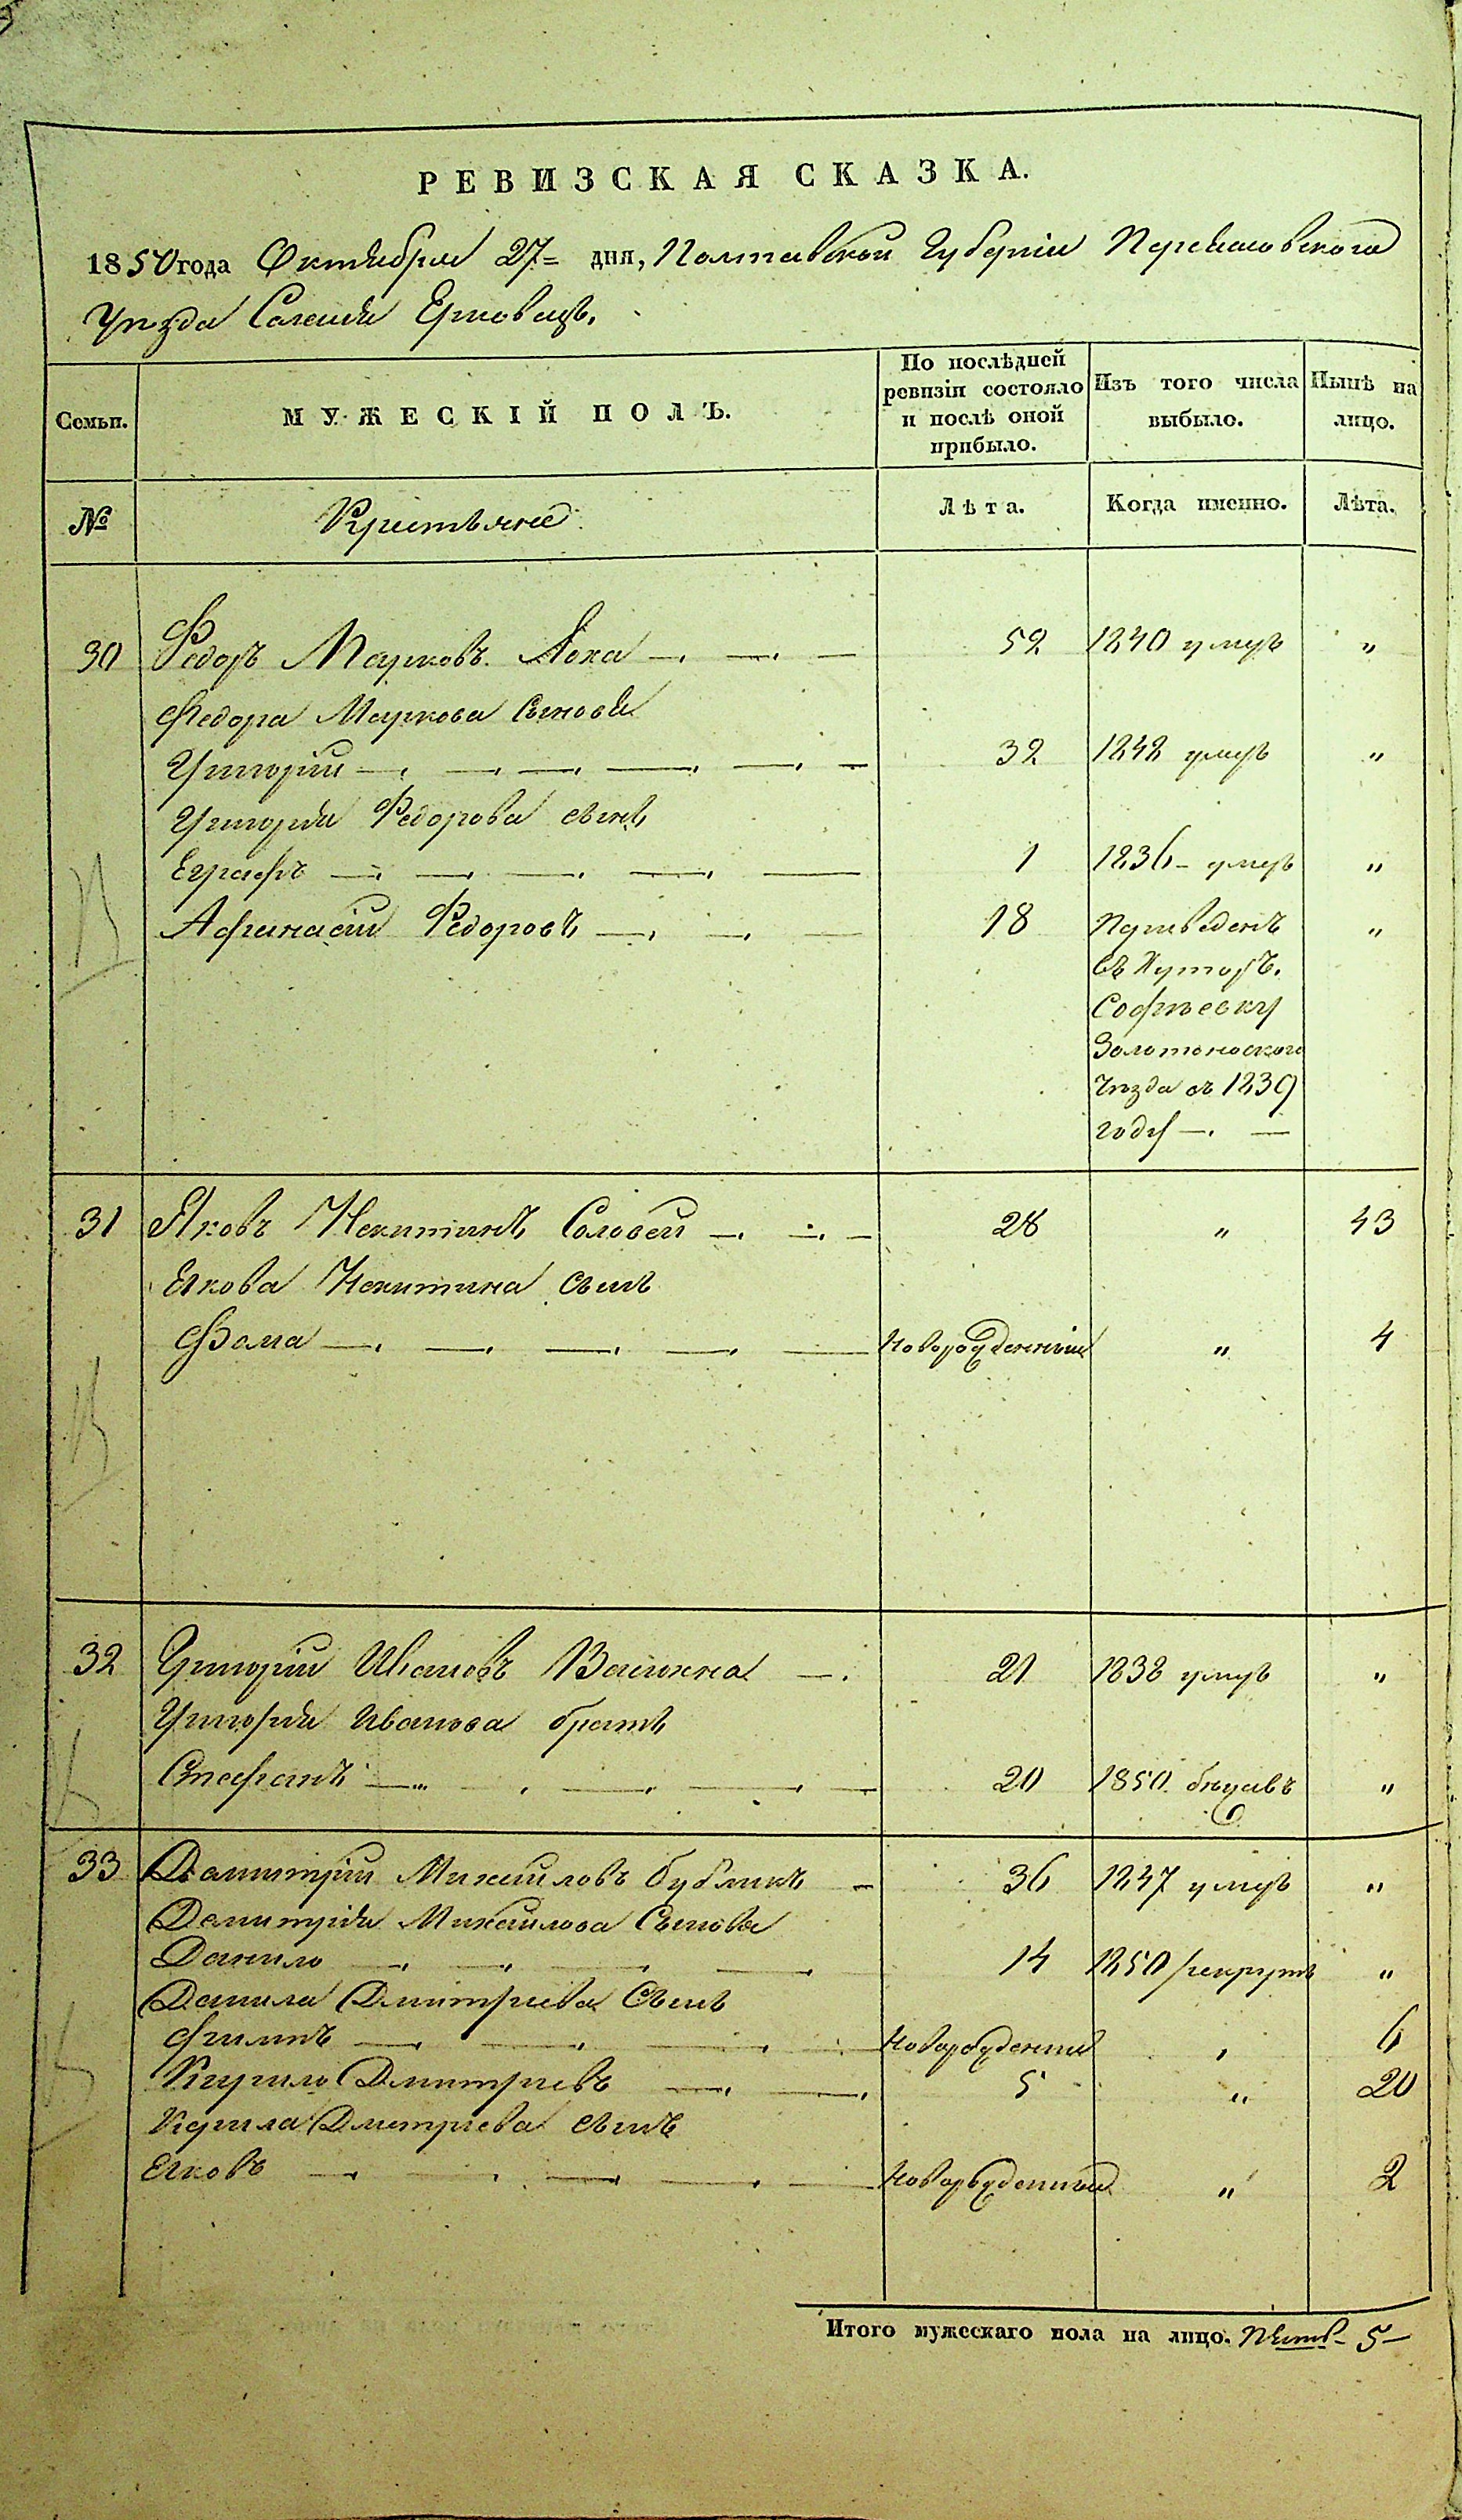 РЕВИЗСКАЯ СКАЗКА.
1850 года Октября 27 = дня, Полтавской Губернии Переяславского
Уезда Селения Ерковацъ.
Семьи.
МУЖЕСКІЙ ПОЛЪ.
По послѣдней ревизіи состояло и послѣ оной прибыло.
Изъ того числа выбыло.
Нынѣ на лицо.
№
Крестьяне
Лѣта.
Когда именно.
Лѣта.
30 Федоръ Марковъ Лоха 52 1840 умеръ "
Федора Маркова сыновья
Григорій 32 1842 умеръ "
Григорія Федорова сынъ
Евграфъ 1 1836 - умеръ "
Афанасій Федоровъ 18 Переведенъ "
въ Хуторъ.
Софіевку
Золотоноского
Уезда въ 1839
году
31 Яковъ Некитинъ Соловей 28 " 43
Якова Некитина сынъ
Фома Новорожденный " 4
32 Григорій Ивановъ 21 1838 умеръ "
Григорія Иванова братъ
Стефанъ 20 1850 бежавъ "
33 Димитрій Михайловъ бубликъ 36 1847 умеръ "
Димитрія Михайлова Сыновья
Данило 14 1850 рекрутъ "
Данила Дмитриева Сынъ
Филипъ Новорожденный " 6
Кирило Дмитриевъ 5 " 20
Кирила Дмитриева сынъ
Яковъ Новорожденный " 2
Итого мужескаго пола на лицо. Пять - 5 -